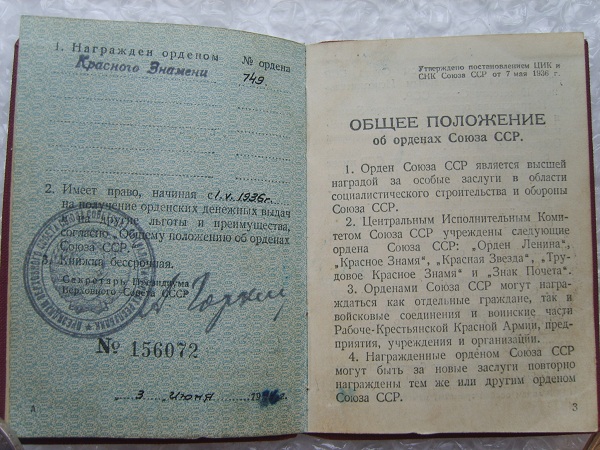 1. Награжден орденом
№ ордена
Красного Знамени
749.
2. Имеет право, начиная с 1.V.1936 г.
на получение орденских денежных выдач
и на другие льготы и преимущества,
согласно „Общему положению об орденах
Союза ССР“.
3. Книжка бессрочная.
Секретарь Президиума
Верховного Совета СССР
№ 156072
3 июня
А
Утверждено постановлением ЦИК и
СНК Союза ССР от 7 мая 1936 г.
ОБЩЕЕ ПОЛОЖЕНИЕ
об орденах Союза ССР.
1. Орден Союза ССР является высшей
наградой за особые заслуги в области
социалистического строительства и обороны
Союза ССР.
2. Центральным Исполнительным Коми-
тетом Союза ССР учреждены следующие
ордена Союза ССР: „Орден Ленина“,
„Красное Знамя“, „Красная Звезда“, „Тру-
довое Красное Знамя“ и „Знак Почета“.
3. Орденами Союза ССР могут награ-
ждаться как отдельные граждане, так и
войсковые соединения и воинские части
Рабоче-Крестьянской Красной Армии, пред-
приятия, учреждения и организации.
4. Награжденные орденом Союза ССР
могут быть за новые заслуги повторно
награждены тем же или другим орденом
Союза ССР.
3